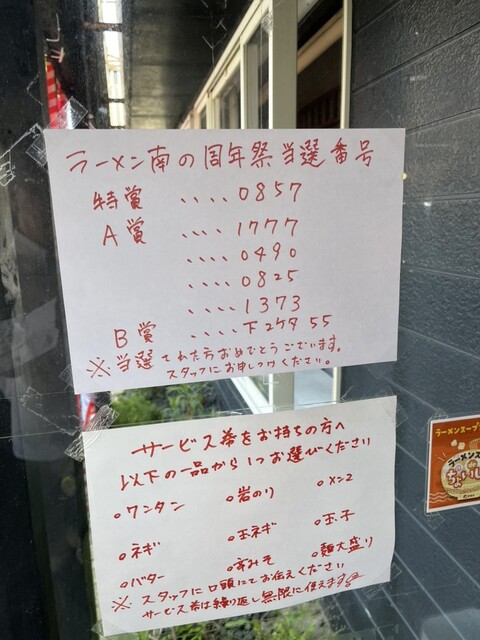 ラーメン南の周年祭当選番号
特賞 ....0857
A賞 ....1777
....0490
....0825
....1373
B賞 ....下2ケタ55
※当選された方おめでとうございます。
スタッフにお申しつけください。
サービス券をお持ちの方へ
以下の一品から1つお選びください
○ワンタン ○岩のり ○メンマ
○ネギ ○玉ネギ ○玉子
○バター ○辛みそ ○麺大盛り
※スタッフに口頭にてお伝えください
サービス券は繰り返し無限に使えます
ラーメンスープ
ラーメン